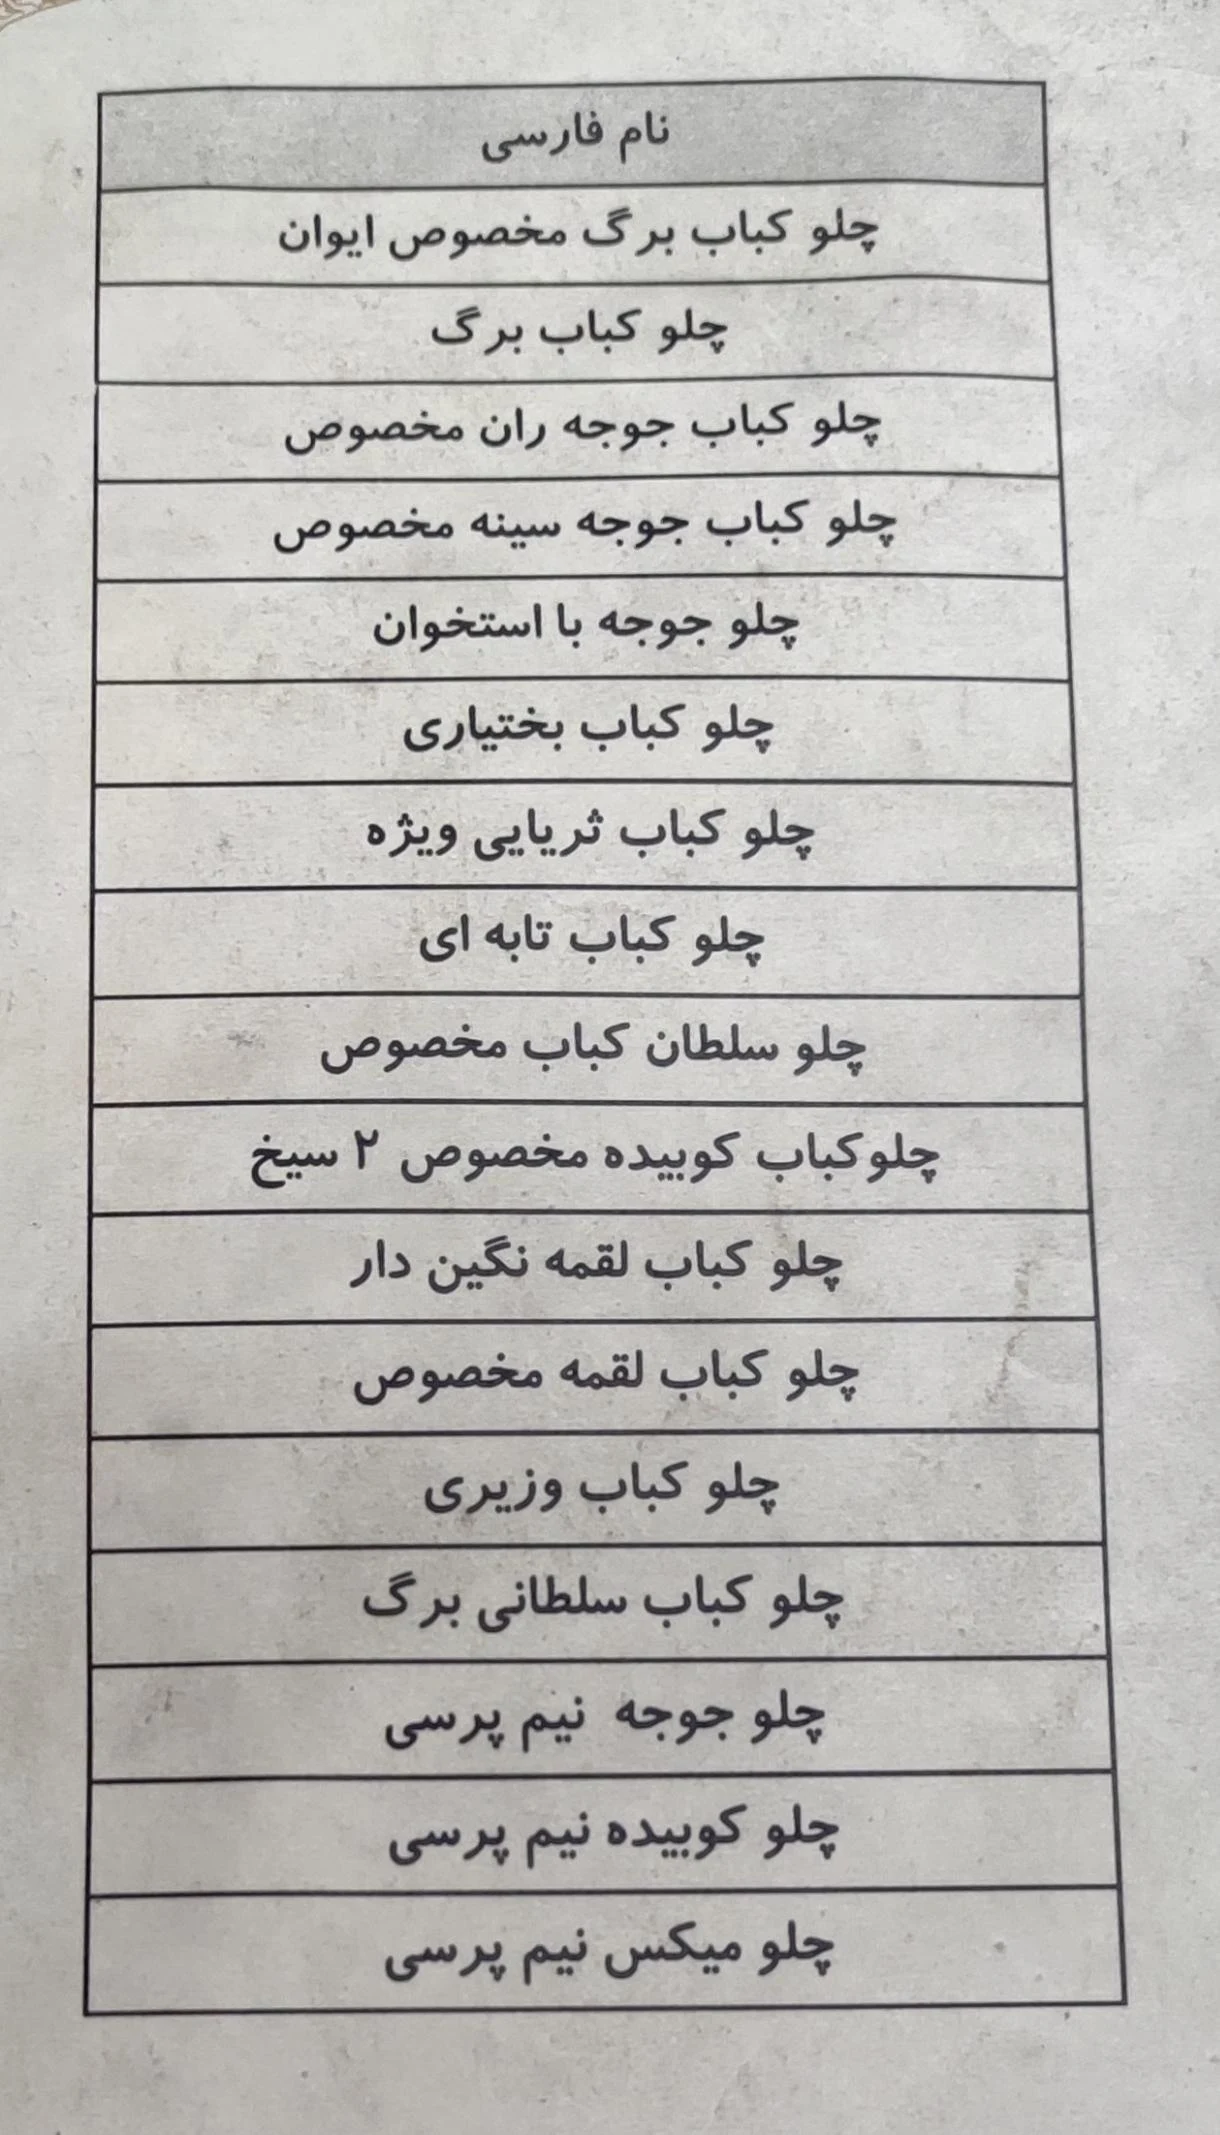 نام فارسی
چلو کباب برگ مخصوص ایوان
چلو کباب برگ
چلو کباب جوجه ران مخصوص
چلو کباب جوجه سینه مخصوص
چلو جوجه با استخوان
چلو کباب بختیاری
چلو کباب ثریایی ویژه
چلو کباب تابه ای
چلو سلطان کباب مخصوص
چلوکباب کوبیده مخصوص ۲ سیخ
چلو کباب لقمه نگین دار
چلو کباب لقمه مخصوص
چلو کباب وزیری
چلو کباب سلطانی برگ
چلو جوجه نیم پرسی
چلو کوبیده نیم پرسی
چلو میکس نیم پرسی